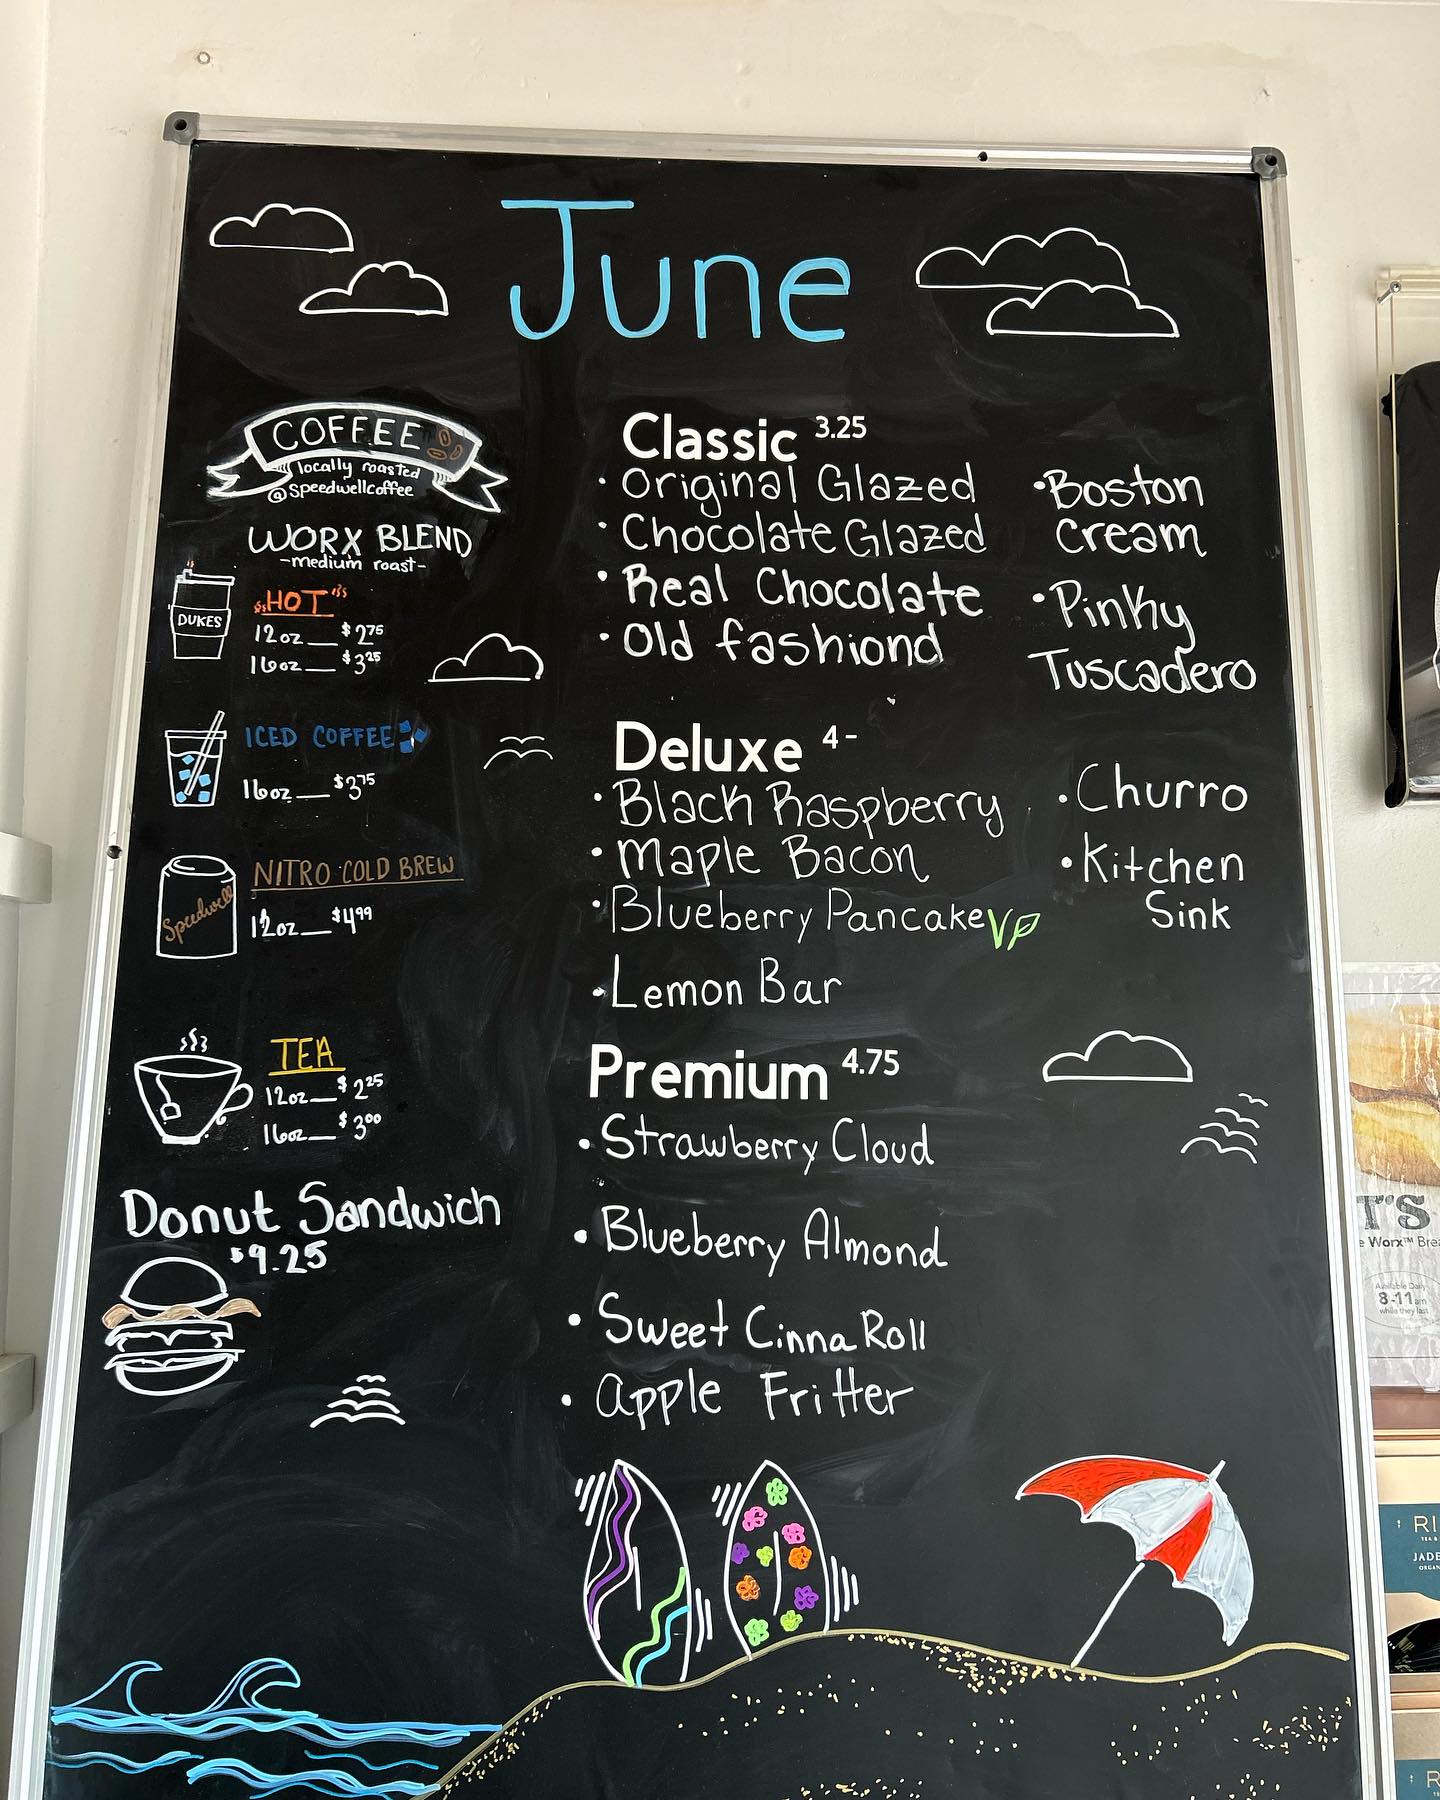 June
COFFEE
locally roasted
@speedwellcoffee
WORX BLEND
-medium roast-
DUKES
HOT
12oz__$2.75
16oz__$3.25
ICED COFFEE
16oz__$3.75
Speedwell
NITRO COLD BREW
12oz__$4.99
TEA
12oz__$2.25
16oz__$3.00
Donut Sandwich
$9.25
Classic 3.25
• Original Glazed
• Chocolate Glazed
• Real Chocolate
• Old fashiond
• Boston
Cream
• Pinky
Tuscadero
Deluxe 4-
• Black Raspberry
• Maple Bacon
• Blueberry Pancake V
• Lemon Bar
• Churro
• Kitchen
Sink
Premium 4.75
• Strawberry Cloud
• Blueberry Almond
• Sweet Cinna Roll
• Apple Fritter
T'S
e Worx™ Brea
Available Daily
8-11am
while they last
RI
JADE
ORGAN
R